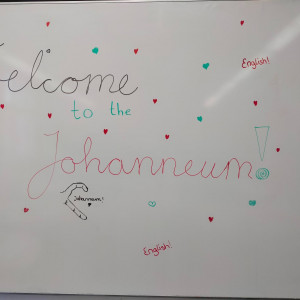 English!
Welcome
to the
Johanneum!
Johanneum!
English!